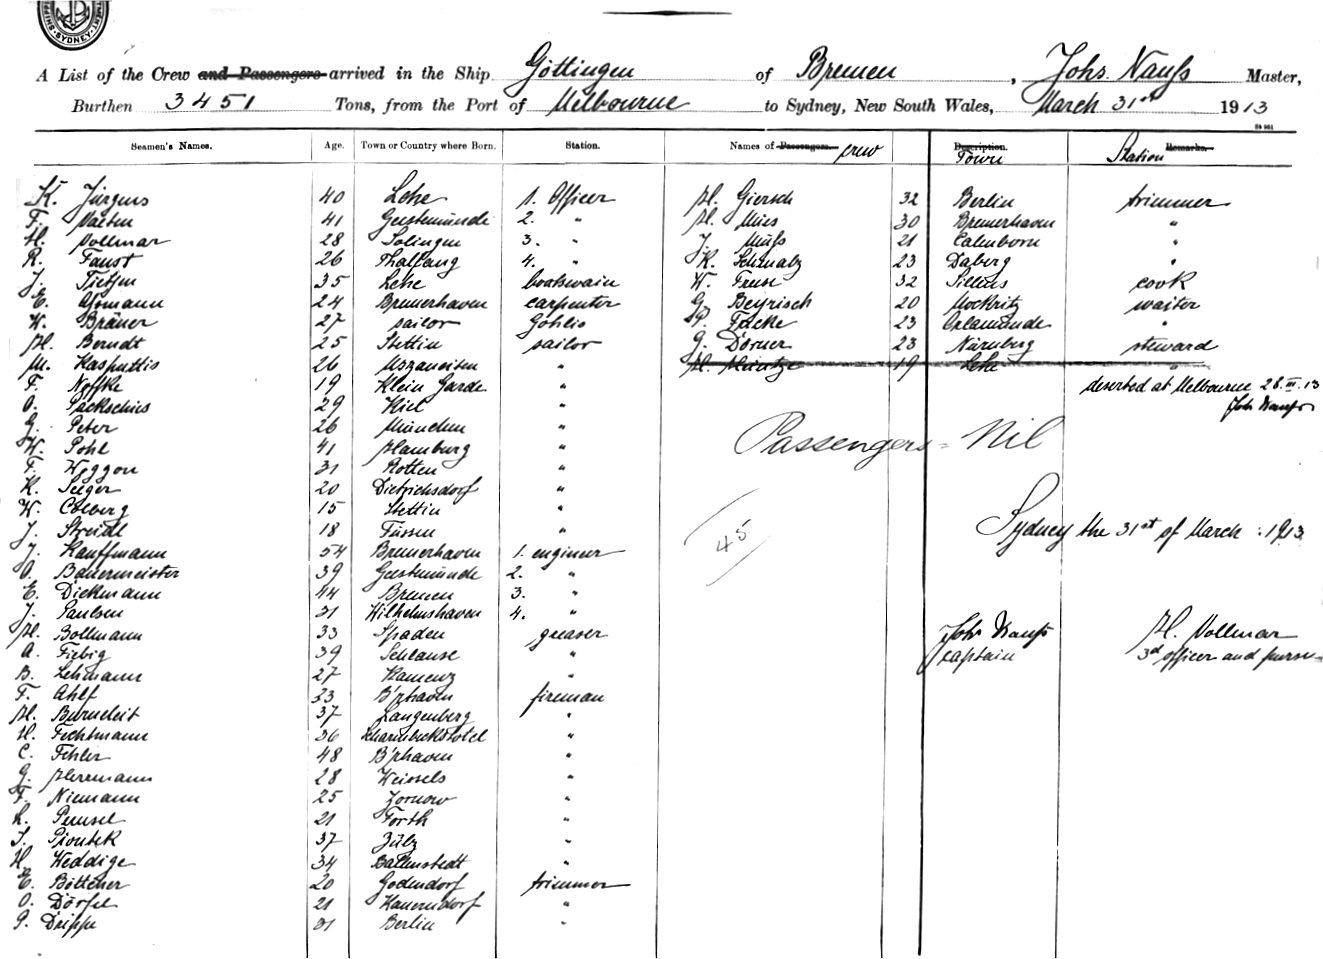 SYDNEY
A List of the Crew and Passengers arrived in the Ship Göttingen of Bremen, Johs. Nauss Master,
Burthen 3451 Tons, from the Port of Melbourne to Sydney, New South Wales, March 31st 1913
Seamen's Names. Age. Town or Country where Born. Station. Names of Passengers. crew Description. Town Remarks. Station
K. Jürgens 40 Lehe 1. Officer H. Giersch 32 Berlin trimmer
F. 41 Geestemünde 2. " H. Mies 30 Bremerhaven "
H. Vollmar 28 Solingen 3. " J. Muss 21 Calmborn "
R. Faust 26 Thalfang 4. " K. Schmalz 23 Daberg "
J. Tietjen 35 Lehe boatswain W. Frese 32 cook
E. Assmann 24 Bremerhaven carpenter G. Beyrisch 20 Mockritz waiter
W. Bräuer 27 sailor Gohlis P. Facke 23 Orlamünde "
H. Berndt 25 Stettin sailor G. Dörner 23 Nürnberg steward
M. Kasputtis 26 " H. Müntze 19 Lehe "
F. Neffke 19 Klein Garde " deserted at Melbourne 28.III.13
O. Päckschies 29 Kiel " Johs Nauss
G. Peter 26 München "
W. Pohl 41 Hamburg " Passengers = Nil
F. Woggon 31 Rotten "
K. Seeger 20 Dietrichsdorf "
W. Colberg 15 Stettin "
J. Streidl 18 Füssen " 45 Sydney the 31st of March : 1913
J. Kauffmann 54 Bremerhaven 1. engineer
O. Bauermeister 39 Geestemünde 2. "
E. Diekmann 44 Bremen 3. "
J. Paulsen 31 Wilhelmshaven 4. "
H. Bollmann 33 Spaden greaser Johs Nauss H. Vollmar
A. Fiebig 39 Schlause " captain 3d officer and purser
B. Lehmann 27 Kamenz "
F. Ahlf 23 B'rhaven fireman
H. Burneleit 37 Langenberg "
H. Fechtmann 36 Scharmbeckstotel "
C. Fehler 48 B'rhaven "
G. Herrmann 28 Weissels "
F. Niemann 25 Zornow "
L. Pensel 21 Forth "
J. Piontek 37 Zülz "
H. Weddige 34 Ballenstedt "
E. Böttcher 20 Godendorf trimmer
O. Dörfel 21 Hauersdorf "
P. Drippe 21 Berlin "